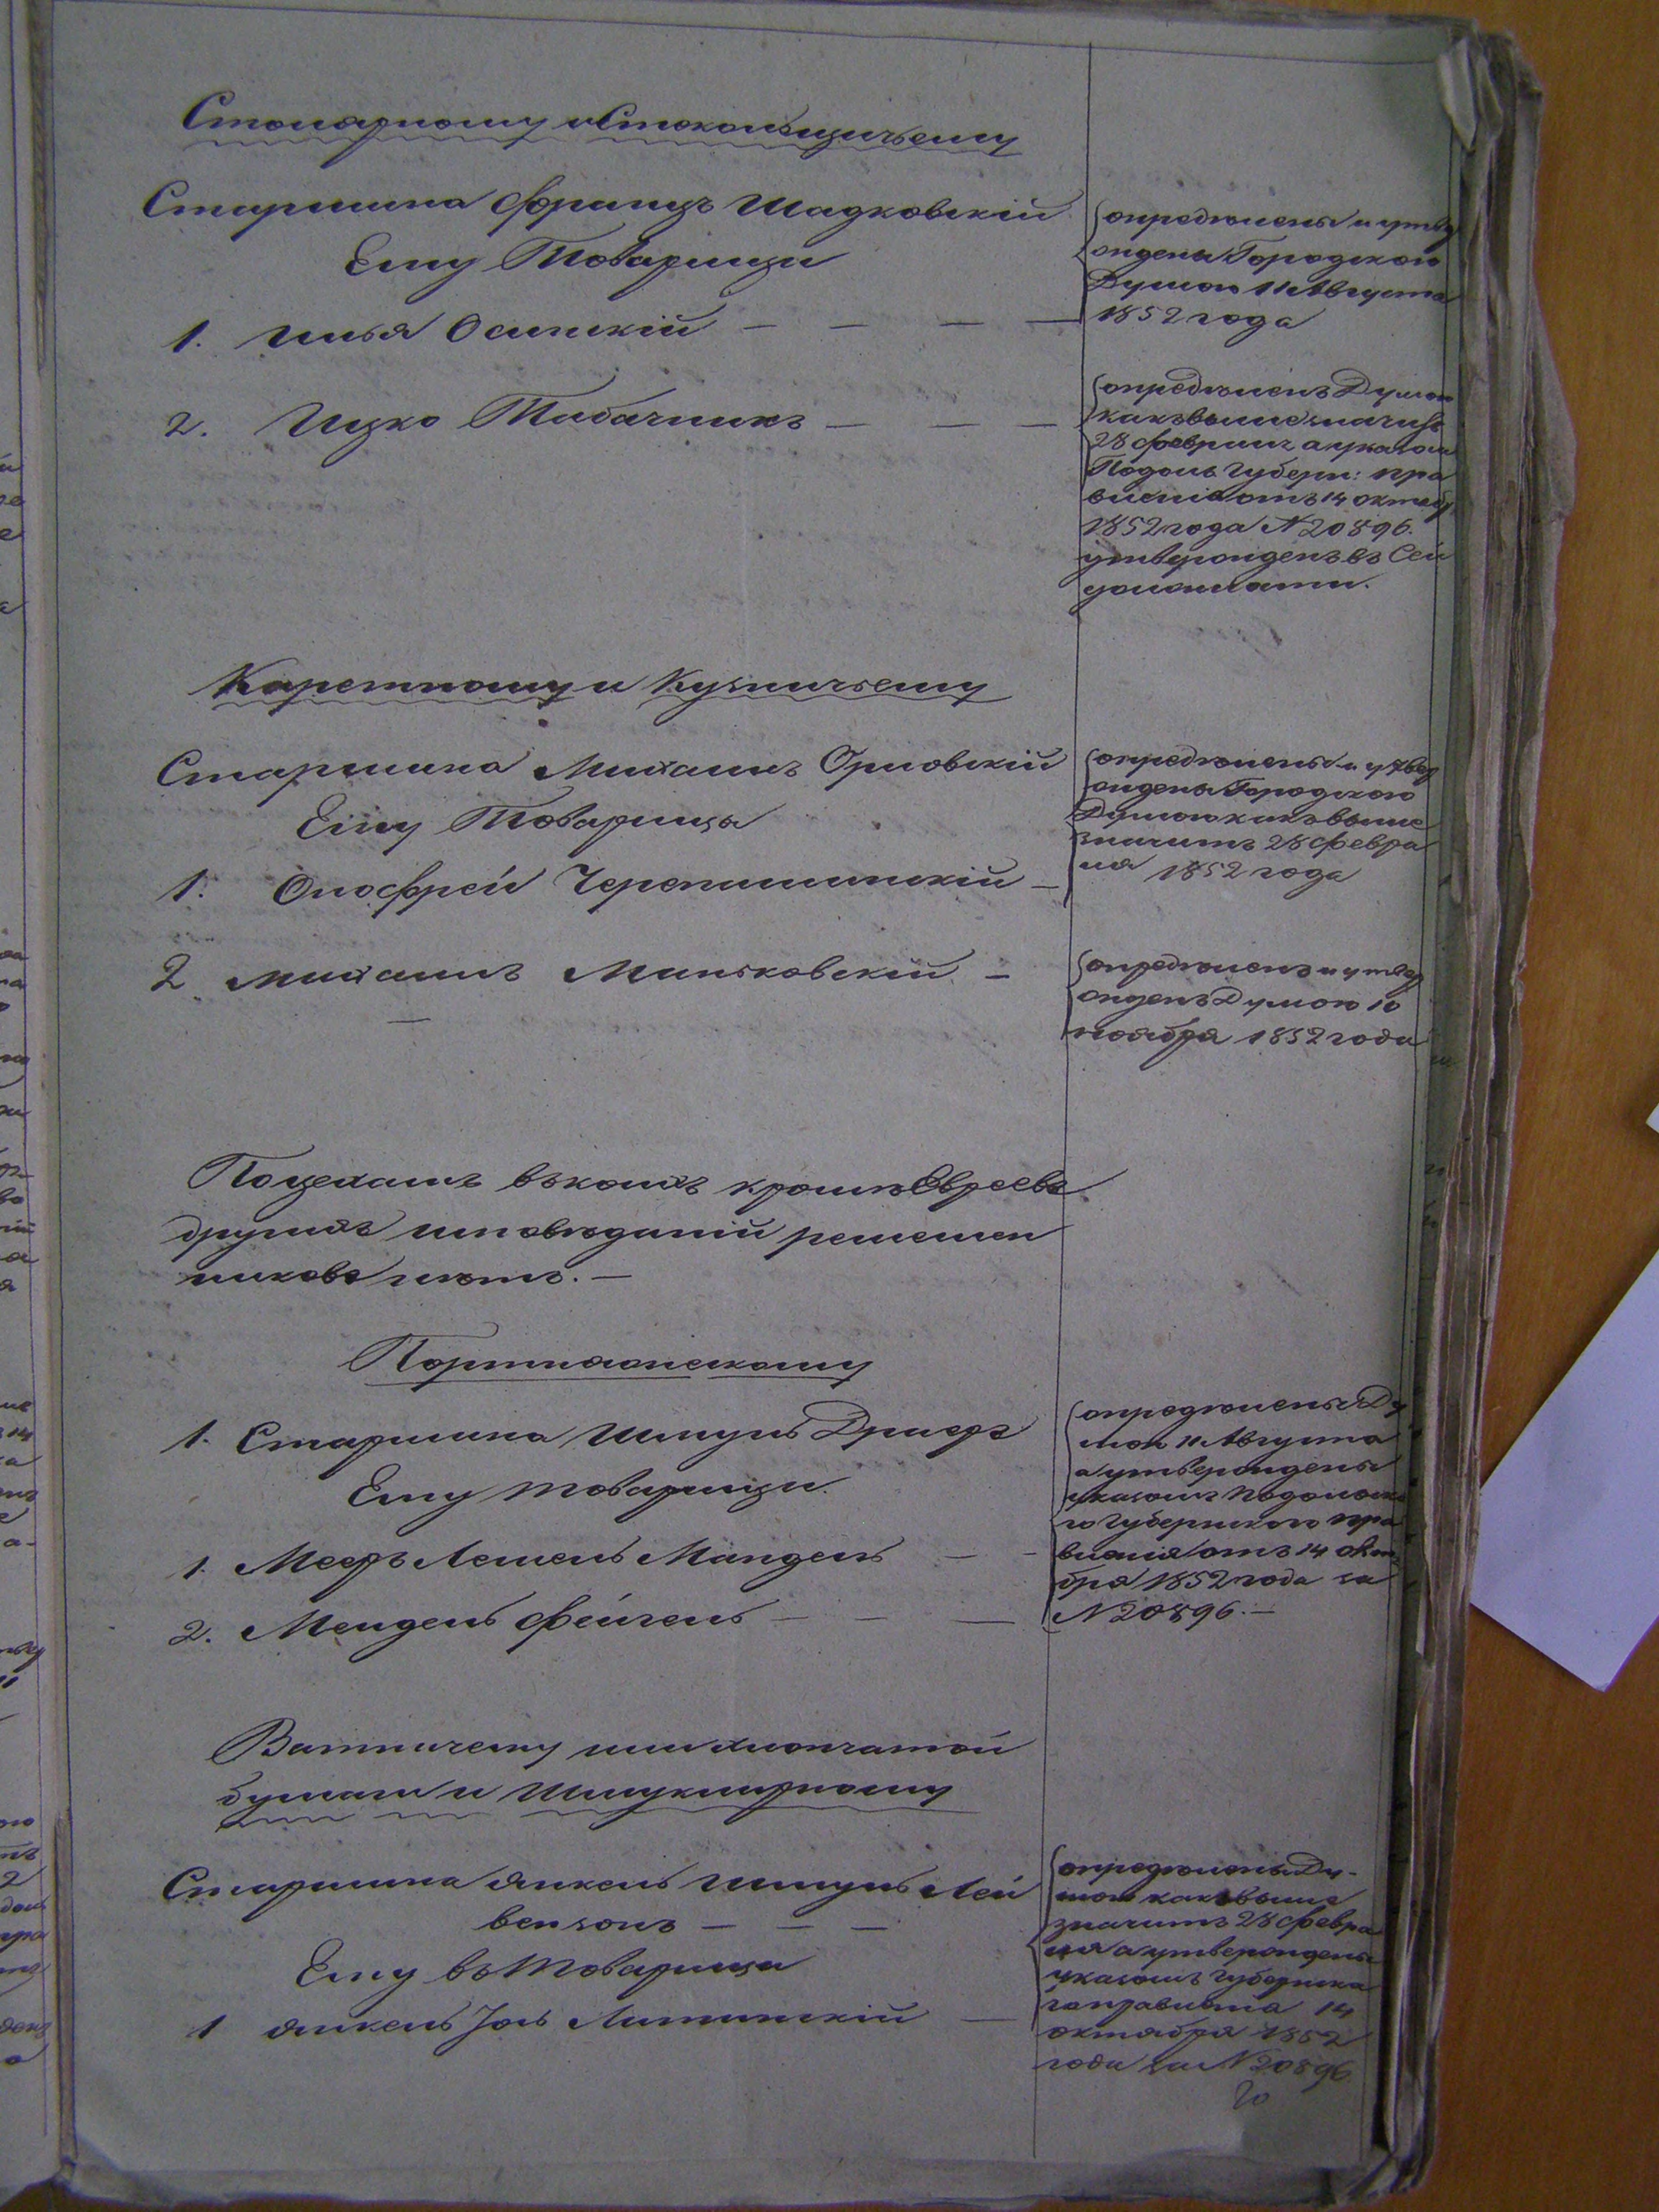 Столярному и Стекольщичьему
Старшина Францъ Шадковскій
Ему Товарищи
1. Илья Осинскій — — — —
2. Ицко Табачникъ — — —
опредѣлены и утвер
ждены Городскою
Думою 11 Августа
1852 года
опредѣленъ Думою
какъ выше значитъ
28 Февраля а указомъ
Подоль: Губерн: пра
вленія отъ 14 октяб
1852 года N 20896.
утвержденъ въ Сей
должности.
Каретному и Кузничьему
Старшина Михаилъ Орловскій
Ему Товарищи
1. Онофрей Черепашинскій —
2 Михаилъ Маньковскій —
опредѣлены и утвер
ждены Городскою
Думою какъ выше
значитъ 28 Февра
ля 1852 года
опредѣленъ и утвер
жденъ Думою 10
ноября 1852 года
По цехамъ въ коихъ кромѣ Евреевъ
другихъ исповѣданій ремеслен
никовъ нѣтъ. —
Портняжескому
1. Старшина Шмуль Дриеръ
Ему товарищи.
1. Меер Лейзель Мандель — —
2. Мендель Фейгель — — —
опредѣлены Ду
мою 11 Августа
а утверждены
указомъ Подольска
го Губернского пра
вленія отъ 14 октя
бря 1852 года за
N 20896. —
Ватничему или хлопчатой
бумаги и Шмуклярному
Старшина Янкель Шмуль Лей
вензонъ — — —
Ему въ Товарищи
1 Янкель Іоль Литинскій —
опредѣлены Ду-
мою какъ выше
значитъ 28 Февра
ля а утверждены
указомъ Губернска
го правленія 14
октября 1852
года за N 20896